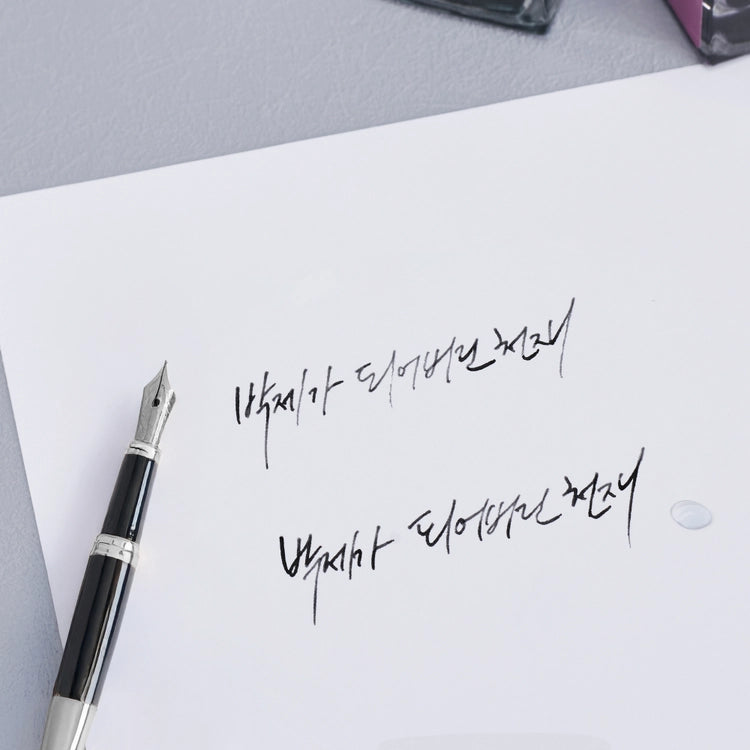 박제가 되어버린 천재
박제가 되어버린 천재